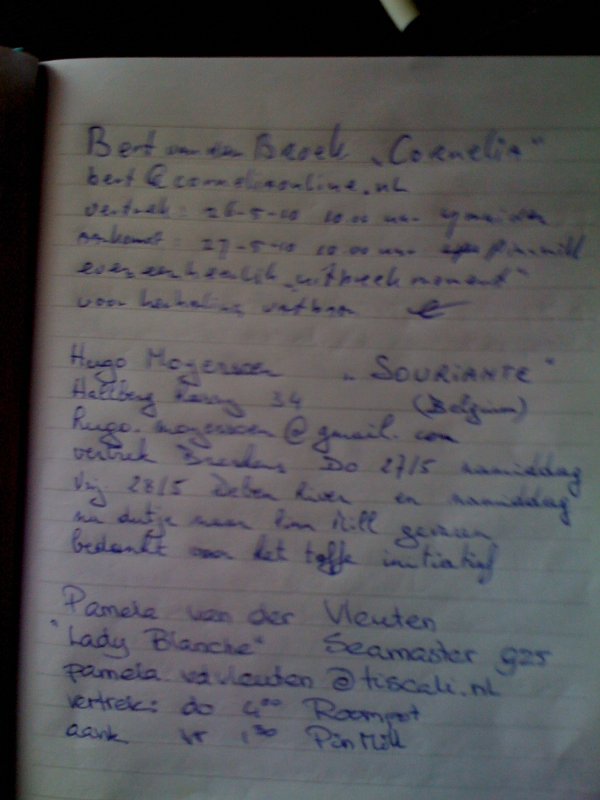 Bert van den Broek „Cornelia"
bert@corneliaonline.nl
vertrek: 26-5-10 10.00 uur ijmuiden
aankomst: 27-5-10 10.00 uur Pinmill
even een heerlijk „uitbreek moment"
voor herhaling vatbaar
Hugo Moyersoen „SOURIANTE"
Hallberg Rassy 34 (Belgium)
hugo.moyersoen@gmail.com
vertrek Breskens Do 27/5 namiddag
Vrij 28/5 Deben River en namiddag
na dutje naar Pin Mill gevaren
bedankt voor het toffe initiatief
Pamela van der Vleuten
"Lady Blanche" Seamaster 925
pamela vdvleuten@tiscali.nl
vertrek: do 4⁰⁰ Roompot
aank vr 1³⁰ Pin Mill